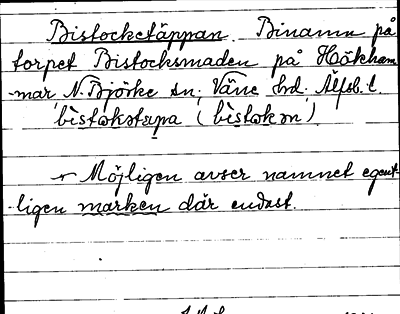 Bistocketäppan. Binamn på
torpet Bistocksmaden på Hökham-
mar N. Björke sn. Väne hd. Älfsb. l.
'bìstɷkətɛpa ('bìstɷkən)
+ Möjligen avser namnet egent-
ligen marken där endast.